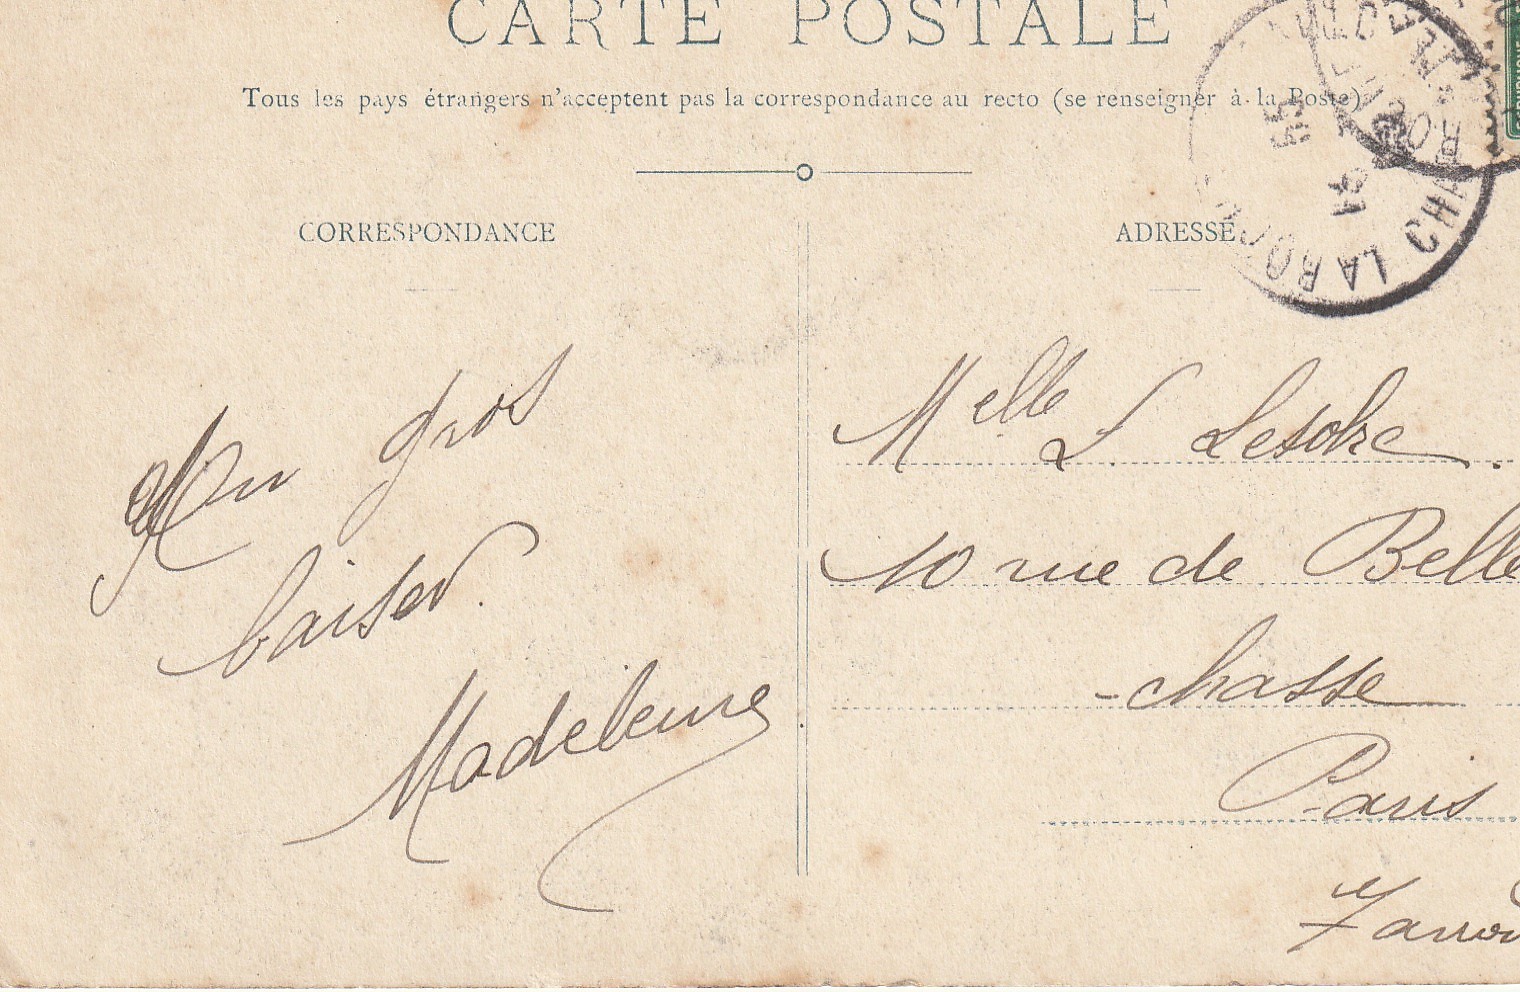 CARTE POSTALE
Tous les pays étrangers n'acceptent pas la correspondance au recto (se renseigner à la Poste)
CORRESPONDANCE
ADRESSE
LA ROCHE
CHA
Mon gros
baiser.
Madeleine
Melle L. Lesobre.
10 rue de Belle
-chasse
Paris
7 arron